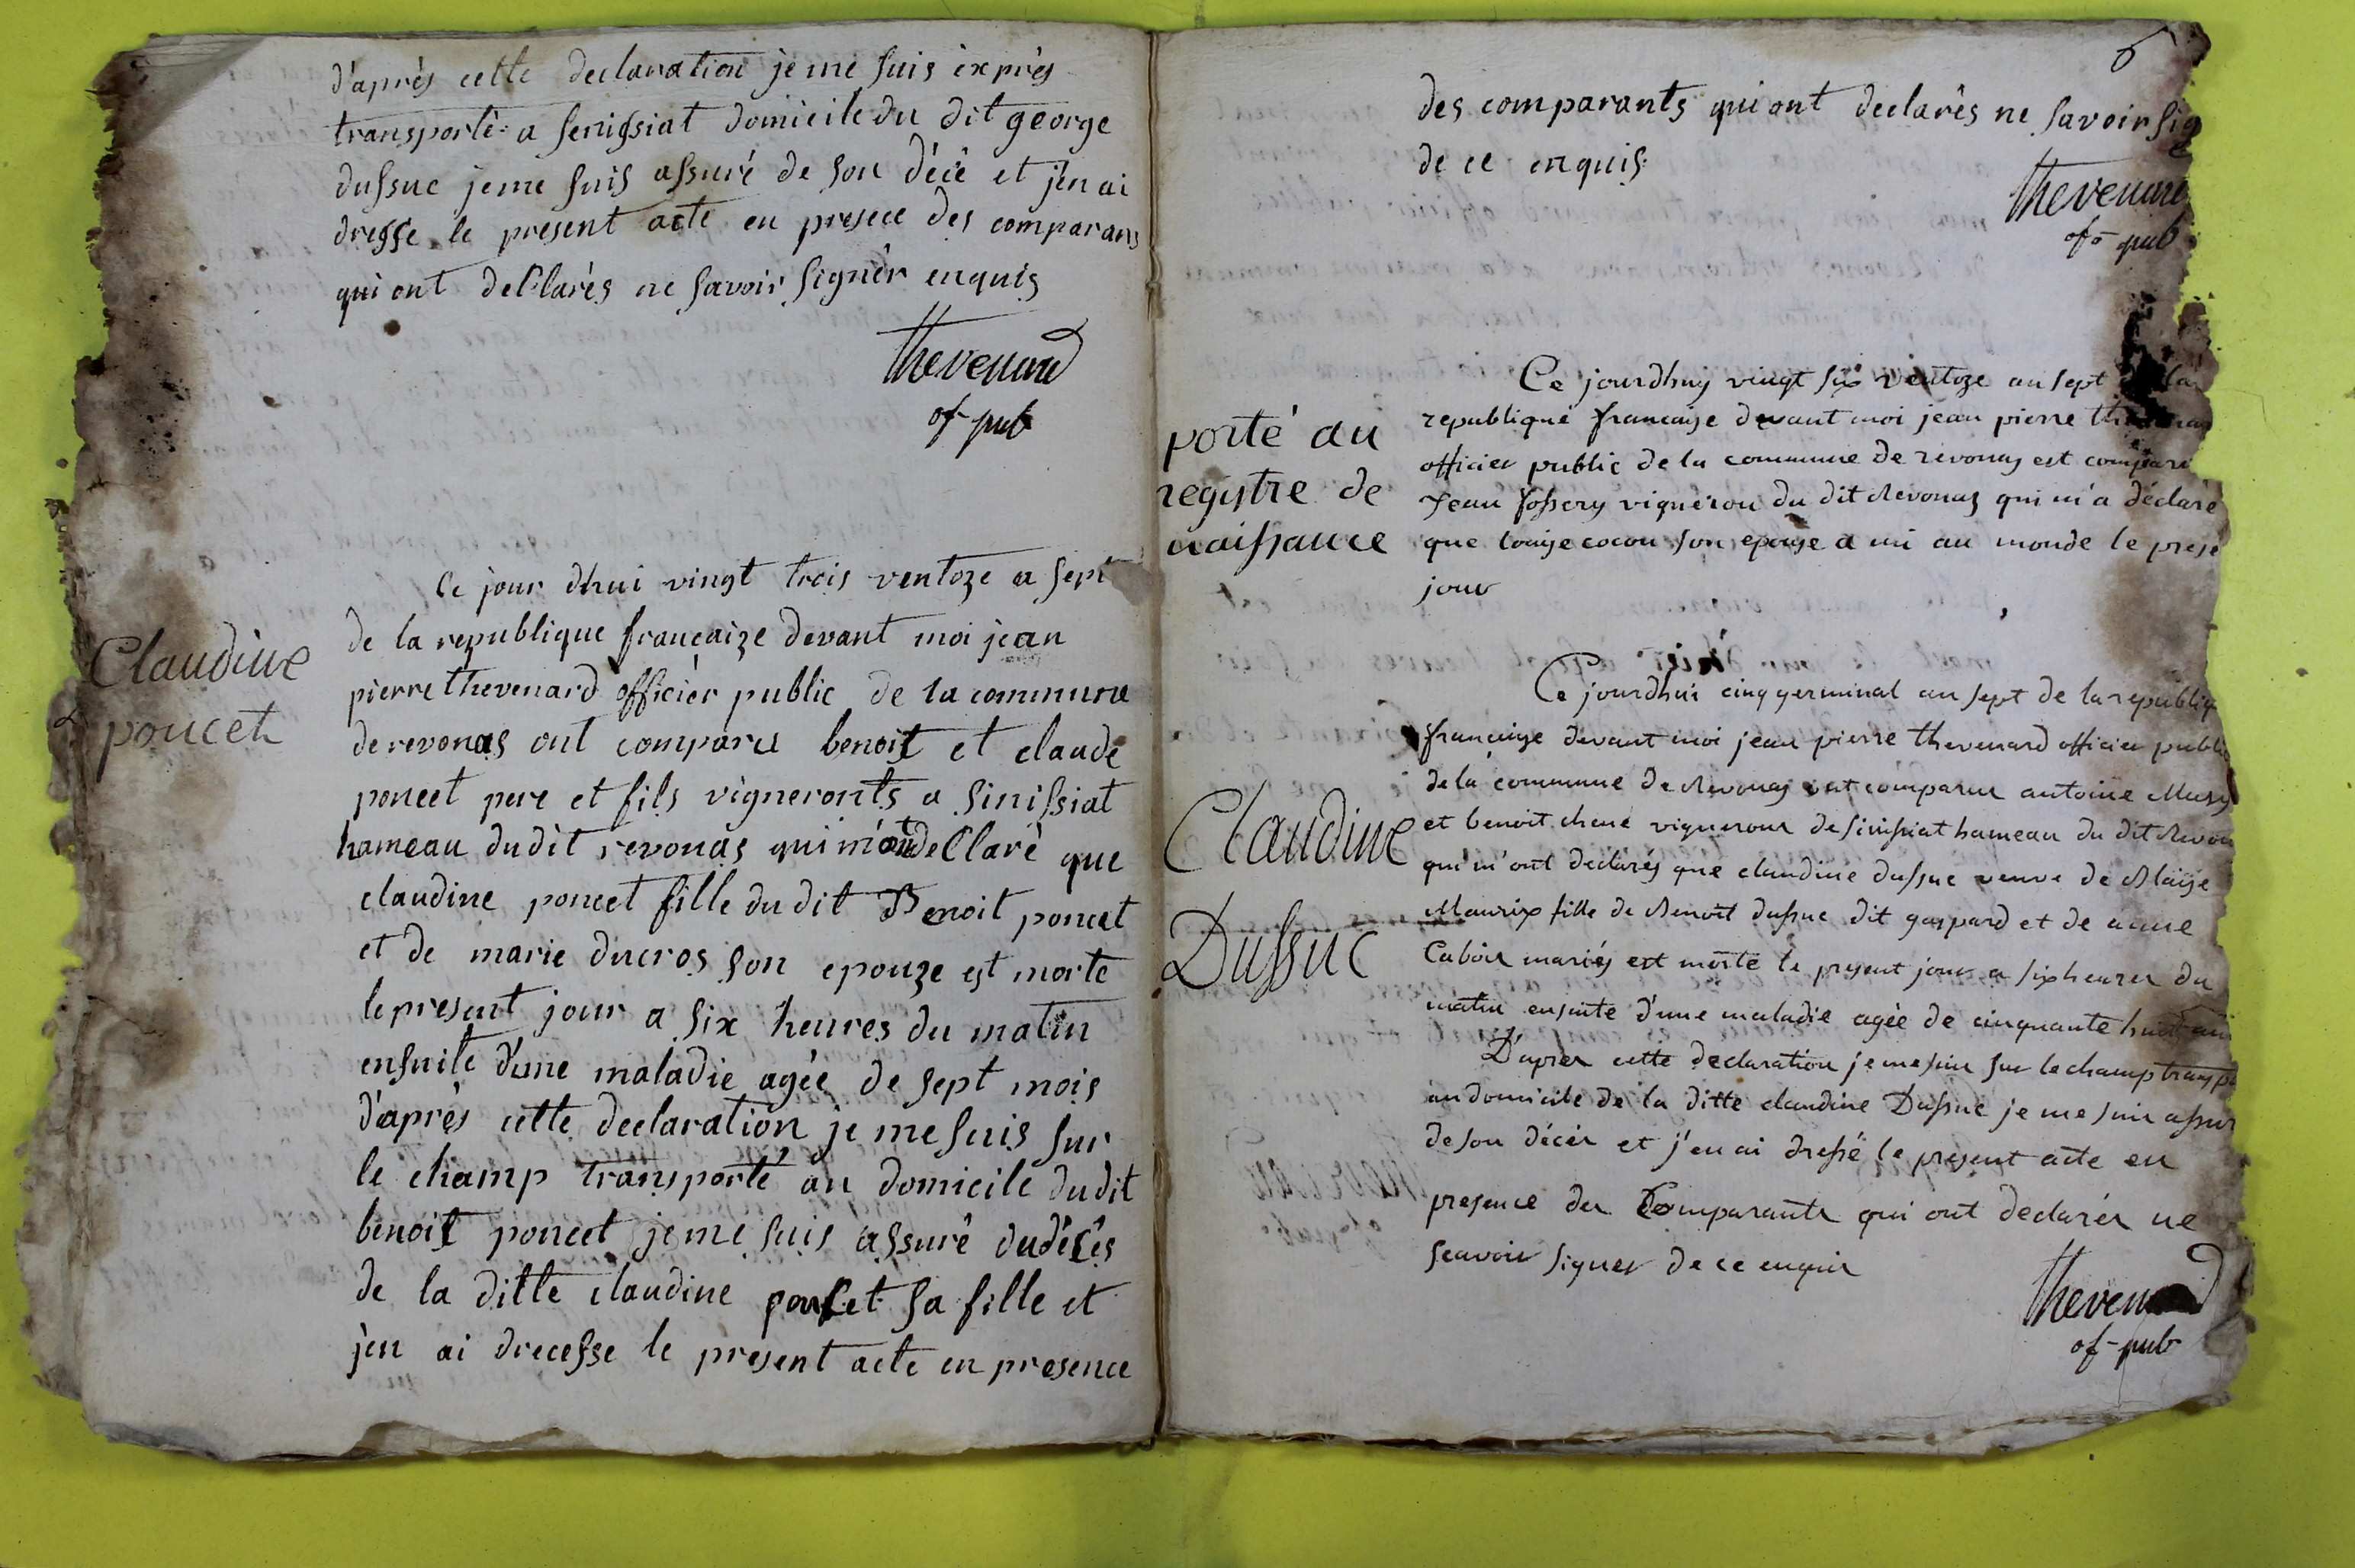 d'après cette declaration je me suis exprès
transporté a senissiat domicile du dit george
dussuc je me suis assuré de son décè et j'en ai
dresse le present acte en presece des comparans
qui ont declarés ne savoir signér enquis
thevenard
of-pub
Ce jour dhui vingt trois ventoze a sept
de la republique françaize devant moi jean
pierre thevenard officièr public de la commune
de revonas ont comparu benoit et claude
poncet pere et fils vigneronts a sinissiat
hameau dudit revonas qui m'ont declaré que
claudine poncet fille du dit Benoit poncet
et de marie ducros son epouze est morte
le present jour a six heures du matin
ensuite d'une maladie agée de sept mois
d'après cette declaration je me suis sur
le champ transporté au domicile dudit
benoit poncet je me suis assuré dudécés
de la ditte claudine poncet sa fille et
j'en ai drecesse le present acte en presence
Claudine
poncet
6
des comparants qui ont declarés ne savoir sig
de ce enquis
thevenard
of- pub
Ce jourdhuy vingt six ventoze an sept la
republique francaise devant moi jean pierre
officier public de la commune de revonas est comparu
Jean fossery vigneron du dit Revonas qui m'a déclaré
que louise cocon son epouse a mi au monde le prese
jour
porté au
registre de
naissance
Ce jourdhui cinq germinal an sept de la republiq
francaise devant moi jean pierre thevenard officier public
de la commune de Revonas ont comparu antoine Mury
et benoit chené vignerons de sinissiat hameau du dit Revon
qui m'ont declarés que claudine dussuc veuve de Blaise
Maurix fille de Benoît dussuc dit gaspard et de anne
Caboir mariés est morte le present jour a six heures du
matin ensuite d'une maladie agée de cinquante huit ans
D'apres cette declaration je me suis sur le champ transp
au domicile de la ditte claudine Dussuc je me suis assur
de son décés et j'en ai dressé le present acte en
presence des Comparants qui ont declarés ne
scavoir signer de ce enquis
thevenard
of-pub
Claudine
Dussuc